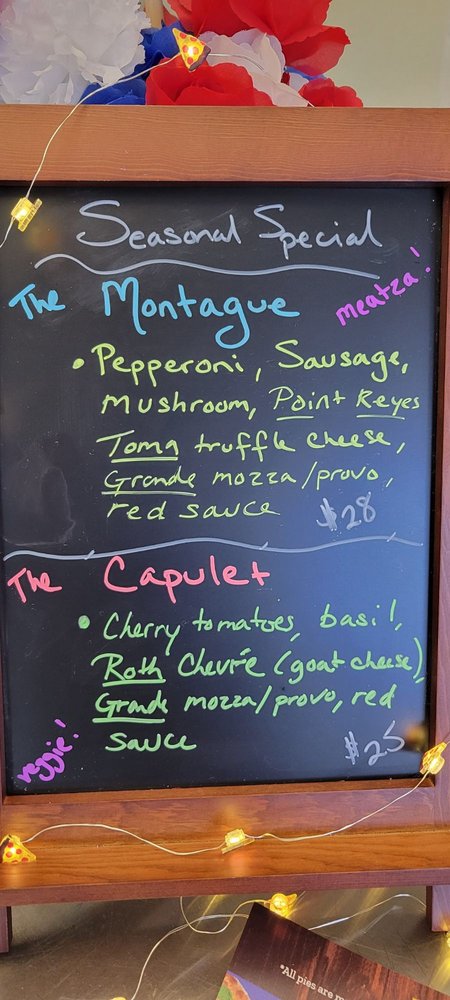 Seasonal Special
The Montague
meatza!
• Pepperoni, Sausage,
Mushroom, Point Reyes
Toma truffle cheese,
Grande mozza/provo,
red sauce $28
The Capulet
• Cherry tomatoes, basil,
Roth Chevrie (goat cheese),
Grande mozza/provo, red
sauce
veggie!
$25
*All pies are